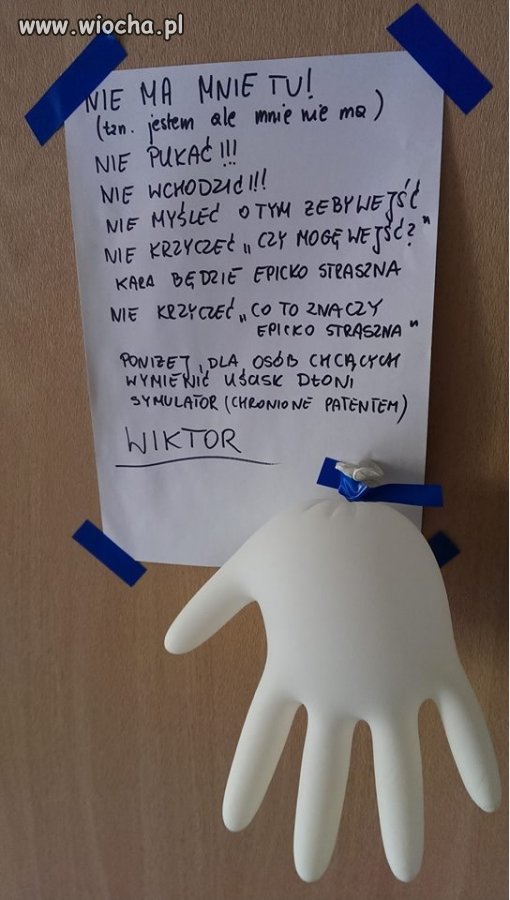 www.wiocha.pl
NIE MA MNIE TU!
(tzn. jestem ale mnie nie ma)
NIE PUKAĆ!!!
NIE WCHODZIĆ!!!
NIE MYŚLEĆ O TYM ŻEBY WEJŚĆ
NIE KRZYCZEĆ „CZY MOGĘ WEJŚĆ?"
KARA BĘDZIE EPICKO STRASZNA
NIE KRZYCZEĆ „CO TO ZNACZY
EPICKO STRASZNA"
PONIŻEJ, DLA OSÓB CHCĄCYCH
WYMIENIĆ UŚCISK DŁONI
SYMULATOR (CHRONIONE PATENTEM)
WIKTOR